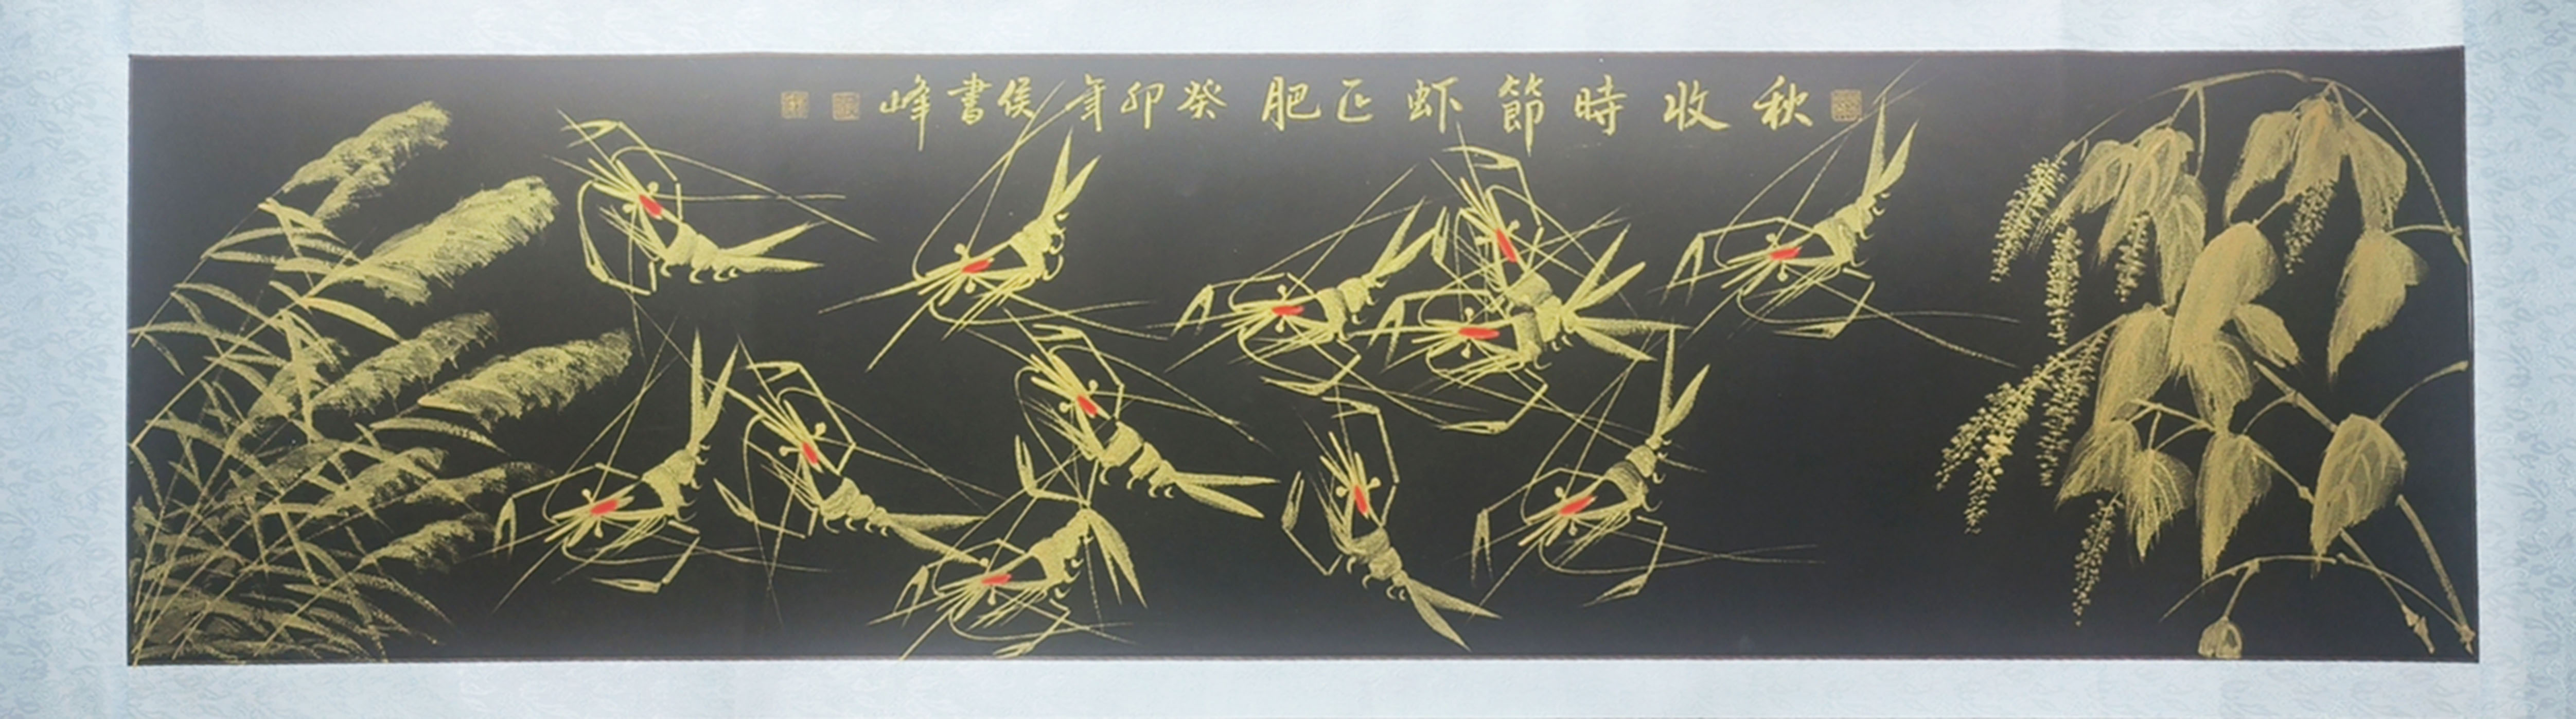 秋收時節虾正肥 癸卯年侯書峰